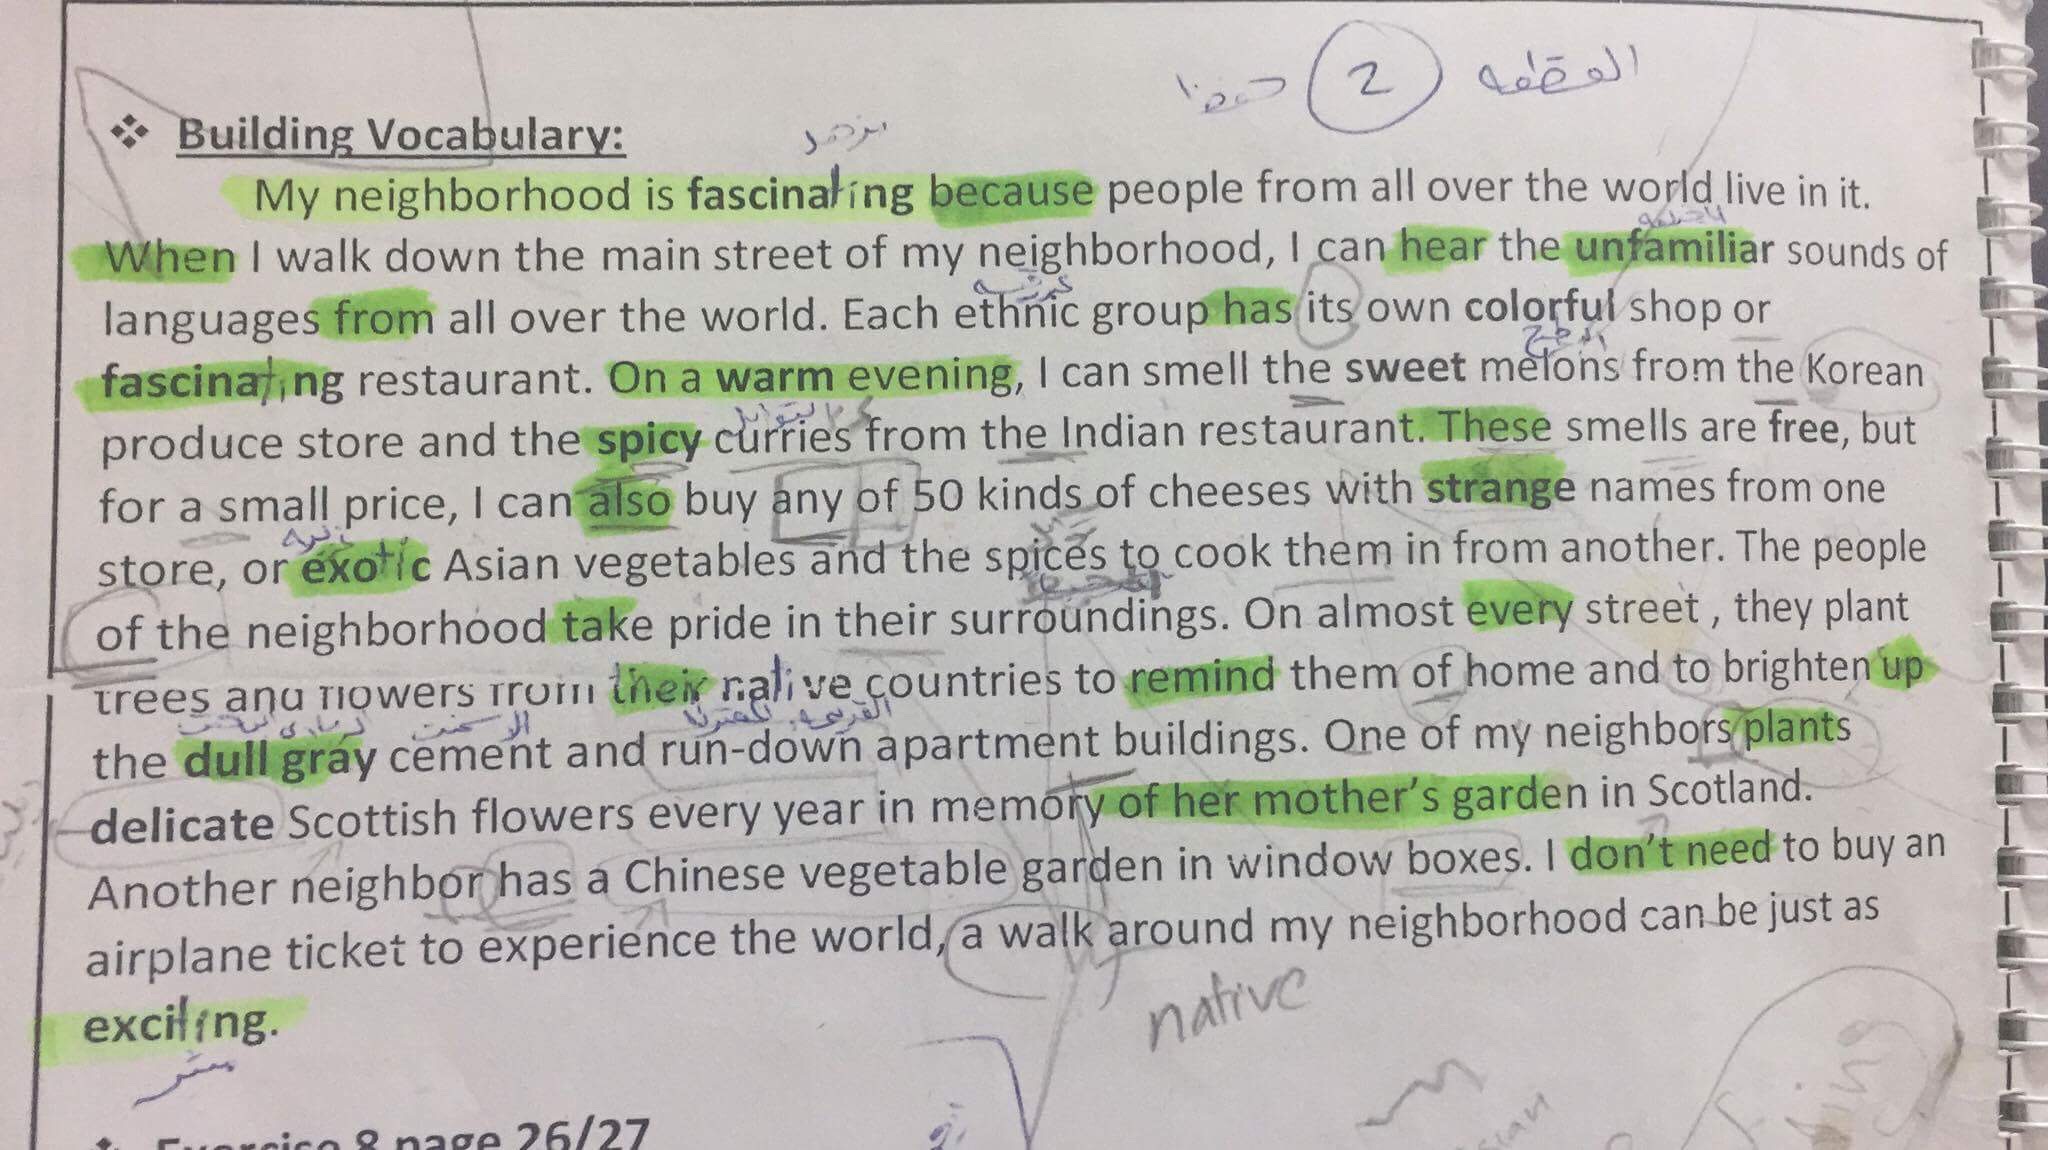 القطعه 2 حفظ
❖ Building Vocabulary:
My neighborhood is fascinating because people from all over the world live in it.
When I walk down the main street of my neighborhood, I can hear the unfamiliar sounds of
languages from all over the world. Each ethnic group has its own colorful shop or
fascinating restaurant. On a warm evening, I can smell the sweet melons from the Korean
produce store and the spicy curries from the Indian restaurant. These smells are free, but
for a small price, I can also buy any of 50 kinds of cheeses with strange names from one
store, or exotic Asian vegetables and the spices to cook them in from another. The people
of the neighborhood take pride in their surroundings. On almost every street , they plant
trees and flowers from their native countries to remind them of home and to brighten up
the dull gray cement and run-down apartment buildings. One of my neighbors plants
delicate Scottish flowers every year in memory of her mother's garden in Scotland.
Another neighbor has a Chinese vegetable garden in window boxes. I don't need to buy an
airplane ticket to experience the world, a walk around my neighborhood can be just as
exciting.
native
Exercise 8 page 26/27